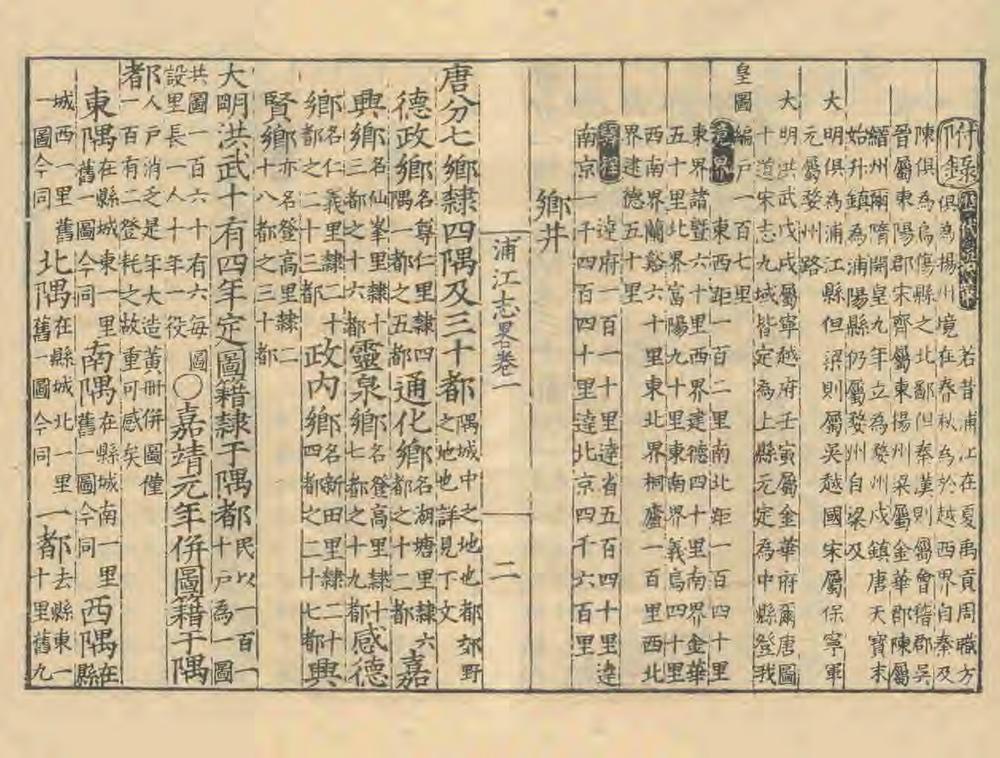 附錄 歷代郡縣沿革 若昔浦江在夏禹貢周職方
俱為揚州境在春秋為於越西界自秦及
陳俱為烏傷縣之北鄙但秦漢則屬會稽郡吳
晉屬東陽郡宋齊屬東揚州梁屬金華郡陳屬
縉州爾隋開皇九年立為婺州戍鎮唐天寶末
始升鎮為浦陽縣仍屬婺州自梁及
大明俱為浦江縣但梁則屬吳越國宋屬保寧軍
元屬婺州路
大明洪武戊戌屬寧越府壬寅屬金華府爾唐圖
十道宋志九域皆定為上縣元定為中縣登我
皇圖編戶一百七里
境界 東西距一百二里南北距一百四十里
東界諸暨六十里西界建德四十里南界金華
五十里北界富陽九十里東南界義烏四十里
西南界蘭谿六十里東北界桐廬一百里西北
界建德五十里
路程 達府一百一十里達省五百四十里達
南京一千四百四十里達北京四千六百里
鄉井
浦江志畧卷一 二
唐分七鄉隸四隅及三十都隅城中之地也都郊野之地也詳見下文
德政鄉名尊仁里隸四隅一都之五都通化鄉名湖塘里隸六都之十二都嘉
興鄉名仙峯里隸十三都之十六都靈泉鄉名登高里隸十七都之十九都感德
鄉名仁義里隸二十都之二十三都政內鄉名新田里隸二十四都之二十七都興
賢鄉亦名登高里隸二十八都之三十都
大明洪武十有四年定圖籍隸于隅都民以一百一十戶為一圖
共圖一百六十有六每圖設里長一人十年一役〇嘉靖元年併圖籍于隅
都人戶消乏是年大造黃冊併圖僅一百有二登耗之故重可感矣
東隅在縣城東一里舊一圖今同南隅在縣城南一里舊一圖今同西隅在縣
城西一里舊一圖今同北隅在縣城北一里舊一圖今同一都去縣東一十里舊九